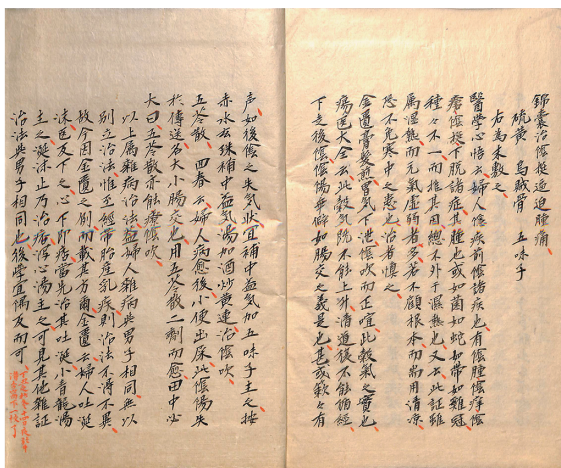 錦囊治陰挺逈迫腫痛
硫黄 烏賊骨 五味子
右為末敷之
醫學心悟云婦人陰疾前陰諸疾也有陰腫陰痒陰
瘡陰挺下脫諸症其腫也或如菌如蛇如帶如雞冠
種々不一而推其因總不外于濕熱也又云此証雖
属濕熱而元氣虛弱者多若不顧根本而耑用清凉
恐不免寒中之患也治者慎之
金匱膏髮煎胃気下泄陰吹而正喧此穀気之實也
瘍医大全云此穀気既不能上升清道復不能循經
下走後陰陰陽乖僻如腸交之義是也甚或簌々有
声如後陰之失気状宜補中益気加五味子主之按
赤水云珠補中益気湯加酒炒黄連治陰吹
五苓散 四春云婦人病愈後小便出屎此陰陽失
於傳送名大小腸交也用五苓散二劑而愈田中必
大曰五苓散亦能療陰吹
以上属雜病治法蓋婦人雜病與男子相同無以
別立治法惟至經帶胎産乳疾則治法不得不異
故今因金匱之別而載其方爾金匱云婦人吐涎
沫医反下之心下即痞當先治其吐涎小青龍湯
主之涎沫止乃治痞瀉心湯主之可見其他雜証
治法與男子相同也後學宜隅反而可